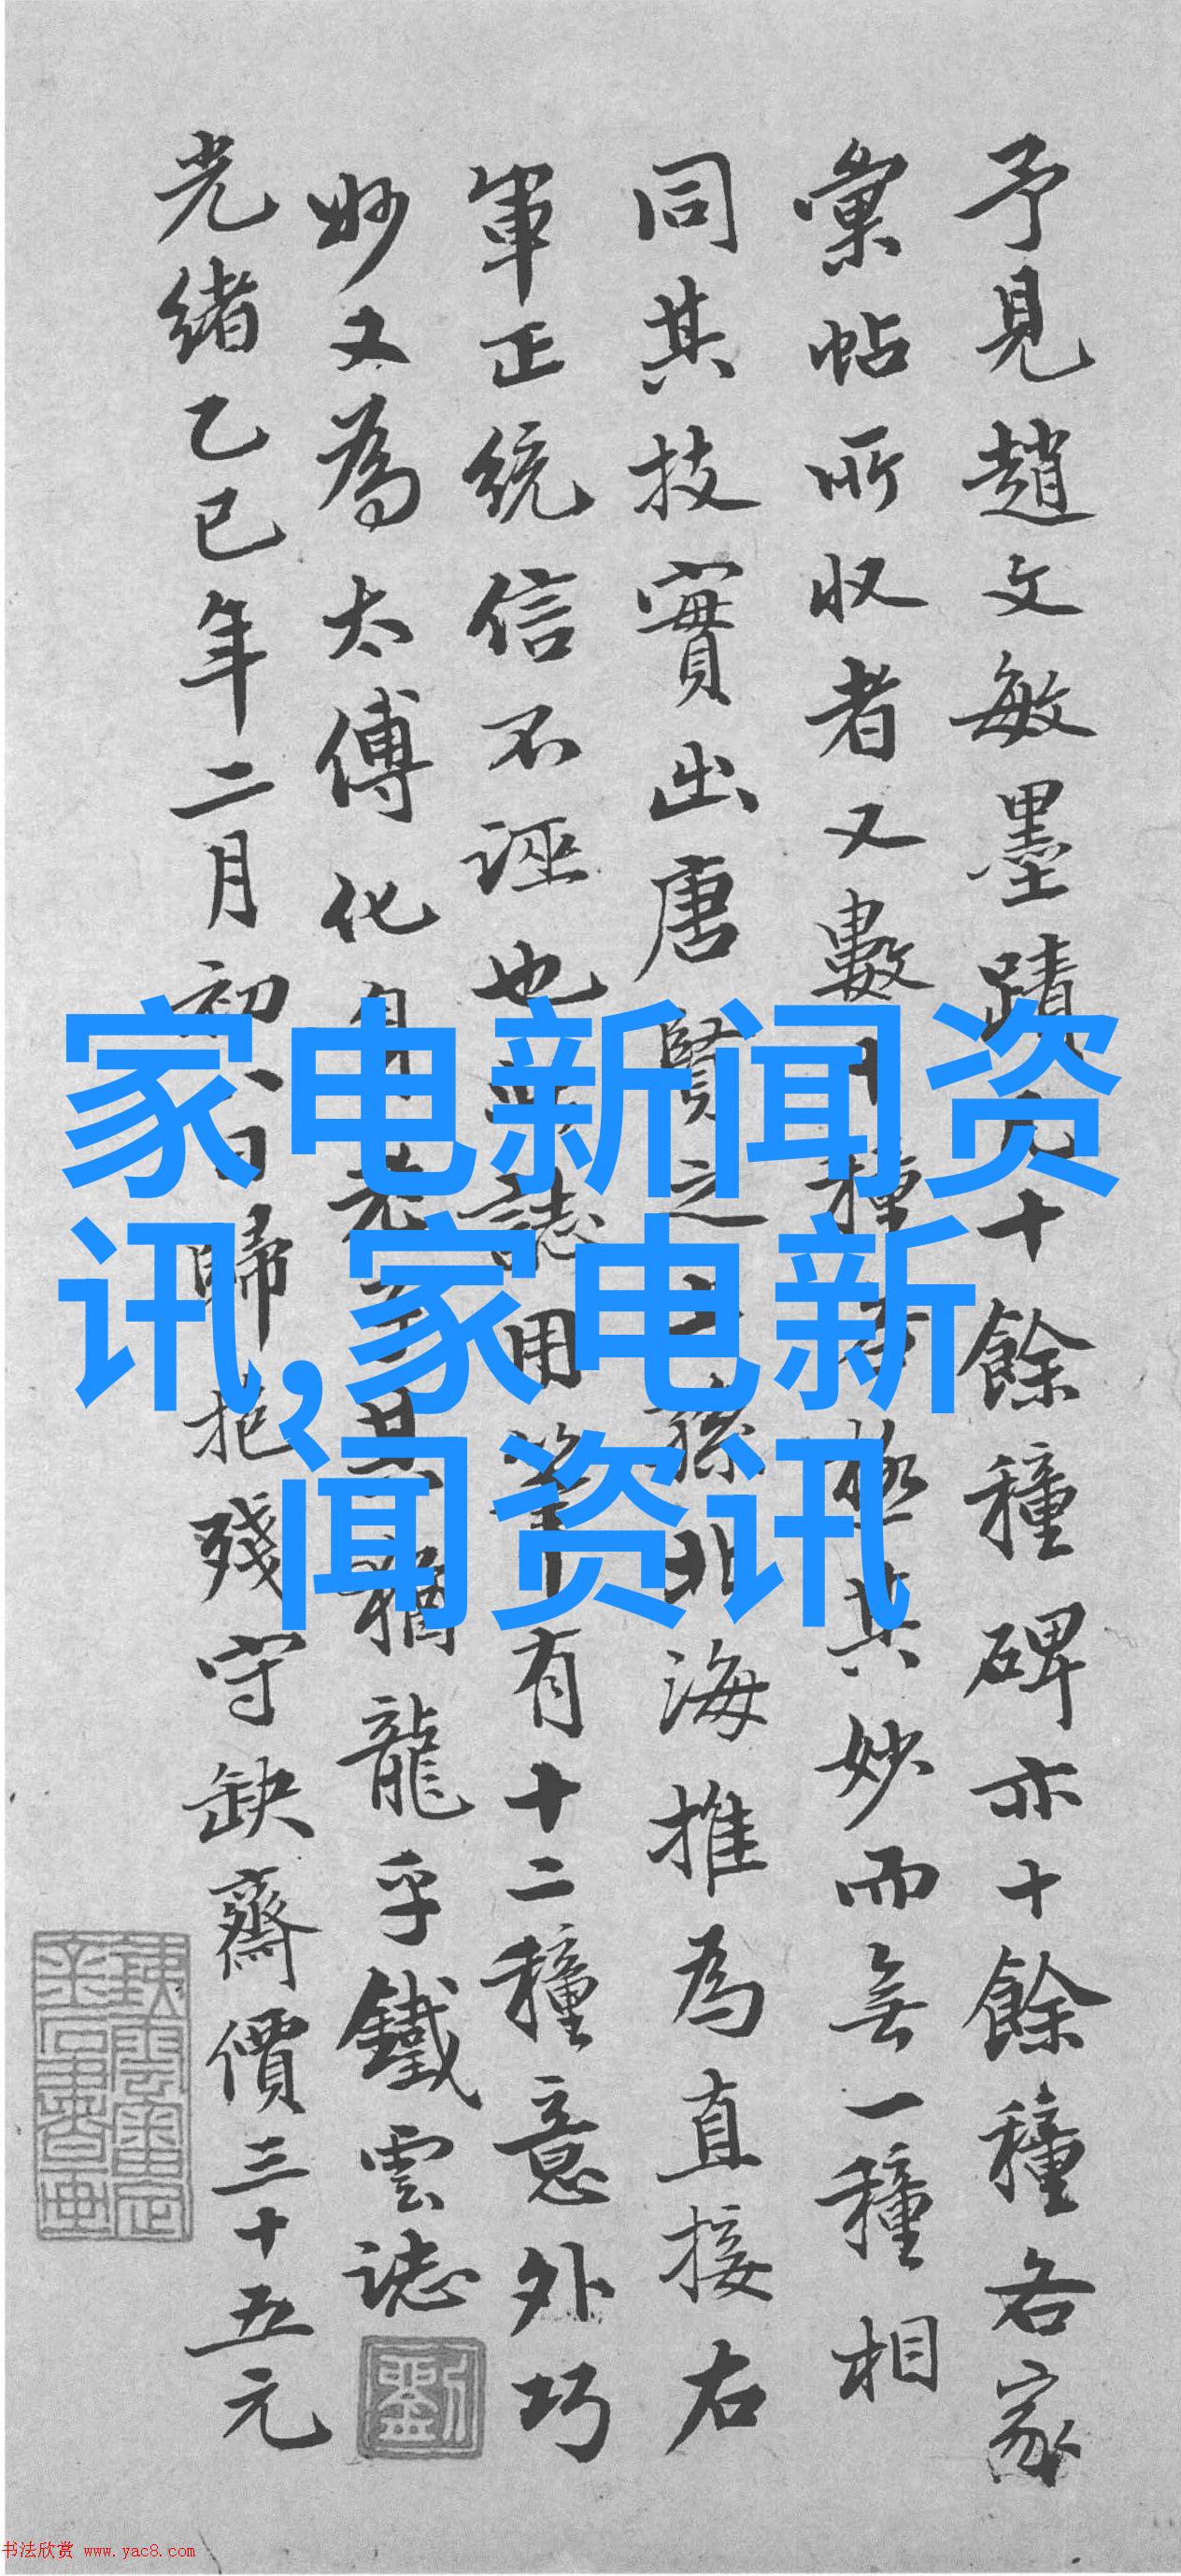 予見趙文敏墨蹟十餘種碑亦十餘種各家
彙帖所收者又數十種極其妙而無一種相
同其技實出唐賢之孫北海推為直接右
軍正統信不誣也此誌用筆有十二種意外巧
妙又為太傅化身老子其猶龍乎鐵雲誌
光緒乙巳年二月初日歸抱殘守缺齋價三十五元
家电新闻资
讯,家电新
闻资讯
劉
书法欣赏 www.yac8.com